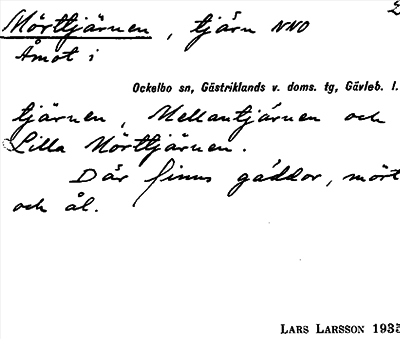 2
Mörttjärnen, tjärn NNO
Åmot i
Ockelbo sn, Gästriklands v. doms. tg, Gävleb. l.
tjärnen, Mellantjärnen och
Lilla Mörttjärnen.
Där finns gäddor, mört
och ål.
LARS LARSSON 1935